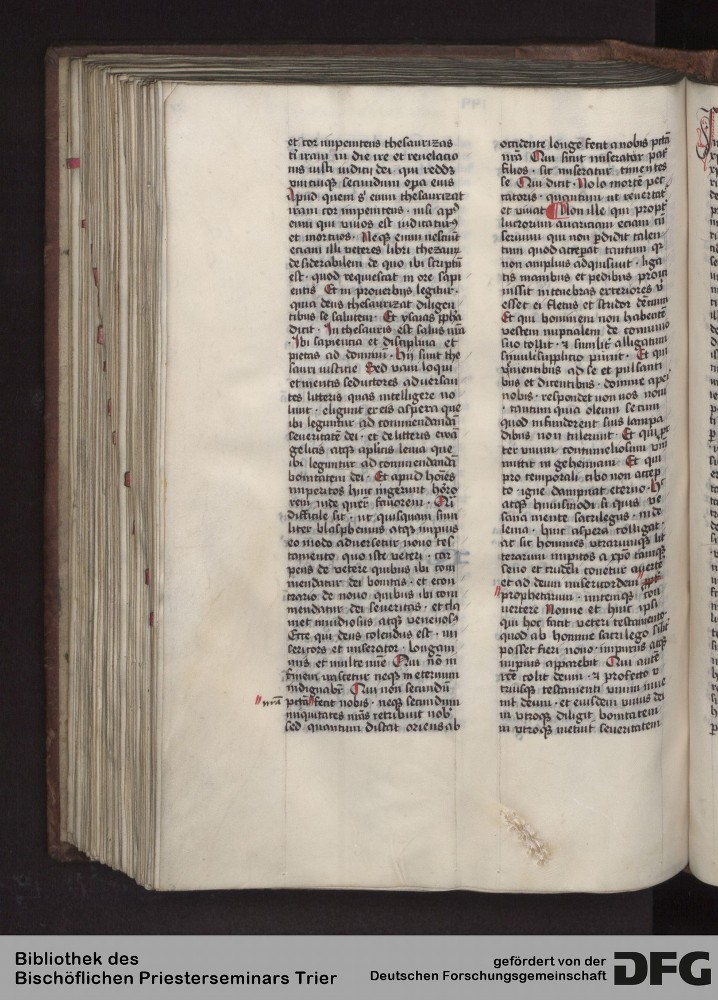 et cor impenitens thesaurizas
ti iram in die ire et revelacio
nis iusti iudicii dei, qui reddꝫ
unicuiqꝫ secundum opa eius
Apud quem sꝫ enim thesaurizat
iram cor impenitens · nisi apd
eum qui vivos est iudicaturꝰ
et mortuos · Neqꝫ enim nesciūt
eciam illi veteres libri thezaurū
desiderabilem de quo ibi scriptū
est · quod requiescat in ore sapi
entis Et in proverbiis legitur ·
quia deus thesaurizat diligen
tibus se salutem · Et ysaias ꝓpha
dicit · In thesauris est salus nrā
· Ibi sapiencia et disciplina et
pietas ad dominū · Hii sunt the
sauri iusticie Sed vani loqui
et mentis seductores adversan
tes litteris quas intelligere no
lunt · eligunt ex eis aspera que
ibi leguntur ad commendandā
severitatē dei · et de litteris ewā
gelicis atqꝫ aplicis lenia que
ibi leguntur ad commendandā
bonitatem dei · Et apud hoīes
imperitos hinc ingerunt horro
rem inde querūt favorem · Qͣsi
difficile sit · ut quisquam simi
liter blasphemus atqꝫ impius
eo modo adversetur novo tes
tamento quo iste veteri · car
pens de vetere quibus ibi com
mendatur dei bonitas · et econ
trario de novo quibus ibi com
mendatur dei severitas · et cla
met invidiosus atqꝫ venenosꝰ
Ecce qui deus colendus est · mi
sericors et miserator · longani
mis et multe mīe Qui nō in
finem irascetur neqꝫ in eternum
indignabr̄ Qui non secundū
nrā pctā fecit nobis · neqꝫ secundum
iniquitates nrās retribuit nob̄
sed quantum distat oriens ab
occidente longe fecit a nobis pctā
nrā Qui sicut miseratur pat̄
filios · sic miseratur timentes
se Qui dicit · Nolo mortē pec
catoris · quantum ut revertat̄
et vivat Non ille qui propt̄
lucrorum avariciam eciam cū
servum qui non ꝑdidit talen
tum quod acceperat tantum qꝫ
non amplius adquisivit · liga
tis manibus et pedibus proici
iussit in tenebras exteriores v̄
esset ei fletus et stridor dentium
Et qui hominem non habentē
vestem nuptialem de convivio
suo tollit · ⁊ similit̄ alligatum
simili supplicio punit · Et qui
venientibus ad se et pulsanti
bus et dicentibus · domine aperi
nobis · respondet non vos novi
· tantum quia oleum secum
quod infunderent suis lampa
dibus non tulerunt · Et qui ꝓp
ter unum contumeliosum v̄m
mittit in gehennam · Et qui
pro temporali cibo non accep
to igne dampnat eterno · Hec
atqꝫ huiusmodi si quis ve
sana mente sacrilegus · inde
lenia · hinc aspera colligat ·
ac sic homines utrarumqꝫ lit
terarum imꝑitos a xp̄o tamqꝫ
sevo et crudeli conetur avertē
et ad deum misericordem
prophetarum · mitemqꝫ con
vertere Nonne et hinc ipsi
qui hoc facit veteri testamento ·
quod ab homine sacrilego silit̄
posset fieri novo · impurus atqꝫ
impius apparebit Qui autē
rēe colit deum · ⁊ profecto u
triusqꝫ testamenti unum inve
nit deum · et eiusdem unius dei
in utroqꝫ diligit bonitatem
in utroqꝫ metuit severitatem
Bibliothek des
Bischöflichen Priesterseminars Trier
gefördert von der
Deutschen Forschungsgemeinschaft
DFG